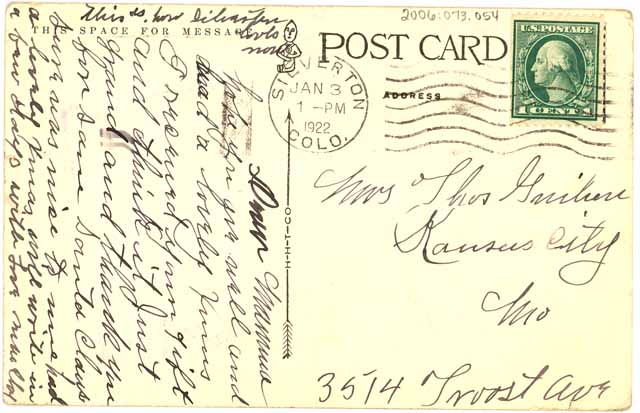 2006.073.054
This is how Silverton
looks
now
THIS SPACE FOR MESSAGE
POST CARD
ADDRESS
SILVERTON
JAN 3
1-PM
1922
COLO.
U.S. POSTAGE
1 CENT 1
H-H-T-CO
Dear Mamma
Hope you are well and
had a lovely Xmas
I received your gift
and think it just
grand and thank you
for same Santa Claus
sure was nice to me had
a lovely Xmas will write in
a few days with love
Mrs Thos
Kansas City
Mo
3514 Troost Ave